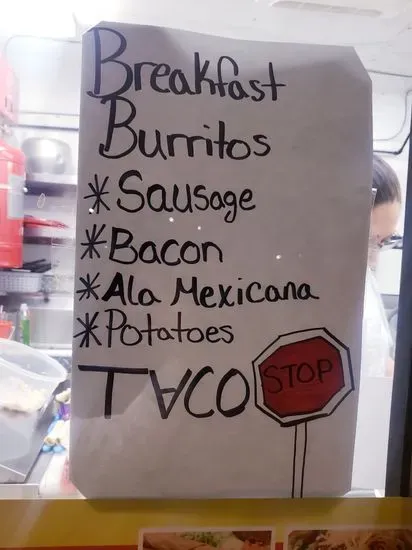 Breakfast
Burritos
*Sausage
*Bacon
*Ala Mexicana
*Potatoes
TACO STOP